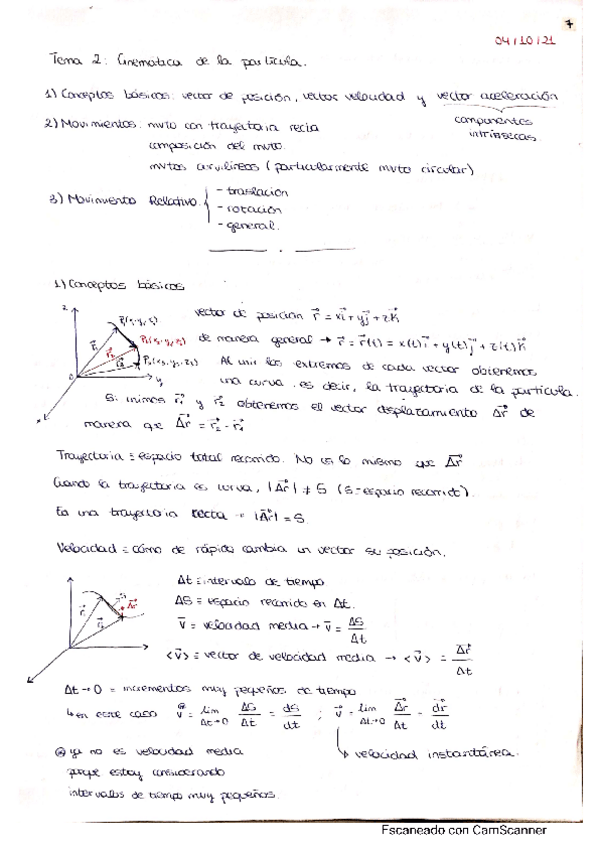 7
04/10/21
Tema 2: Cinematica de la partícula.
1) Conceptos básicos: vector de posición, vector velocidad y vector aceleración
componentes
intrínsecas.
2) Movimientos: mvto con trayectoria recta
composición del mvto.
mvtos curvilíneos (particularmente mvto circular)
3) Movimiento Relativo.
- traslación
- rotación
- general.
1) Conceptos básicos
vector de posición r⃗ = xi⃗ + yj⃗ + zk⃗
de manera general → r⃗ = r⃗(t) = x(t)i⃗ + y(t)j⃗ + z(t)k⃗
Al unir los extremos de cada vector obtenemos
una curva, es decir, la trayectoria de la partícula.
Si unimos r₁⃗ y r₂⃗ obtenemos el vector desplazamiento Δr⃗ de
manera que Δr⃗ = r₂⃗ - r₁⃗
Trayectoria ≡ espacio total recorrido. No es lo mismo que Δr⃗
Cuando la trayectoria es curva, |Δr⃗| ≠ S (S=espacio recorrido).
En una trayectoria recta → |Δr⃗| = S.
Velocidad ≡ cómo de rápido cambia un vector su posición.
Δt ≡ intervalo de tiempo
ΔS ≡ espacio recorrido en Δt.
v̄ = velocidad media → v̄ = ΔS/Δt
<v⃗> ≡ vector de velocidad media → <v⃗> = Δr⃗/Δt
Δt → 0 = incrementos muy pequeños de tiempo
↳ en este caso v = lim Δt→0 ΔS/Δt = ds/dt ; v⃗ = lim Δt→0 Δr⃗/Δt = dr⃗/dt
↳ velocidad instantánea.
ⓐ ya no es velocidad media
porque estoy considerando
intervalos de tiempo muy pequeños.
Escaneado con CamScanner